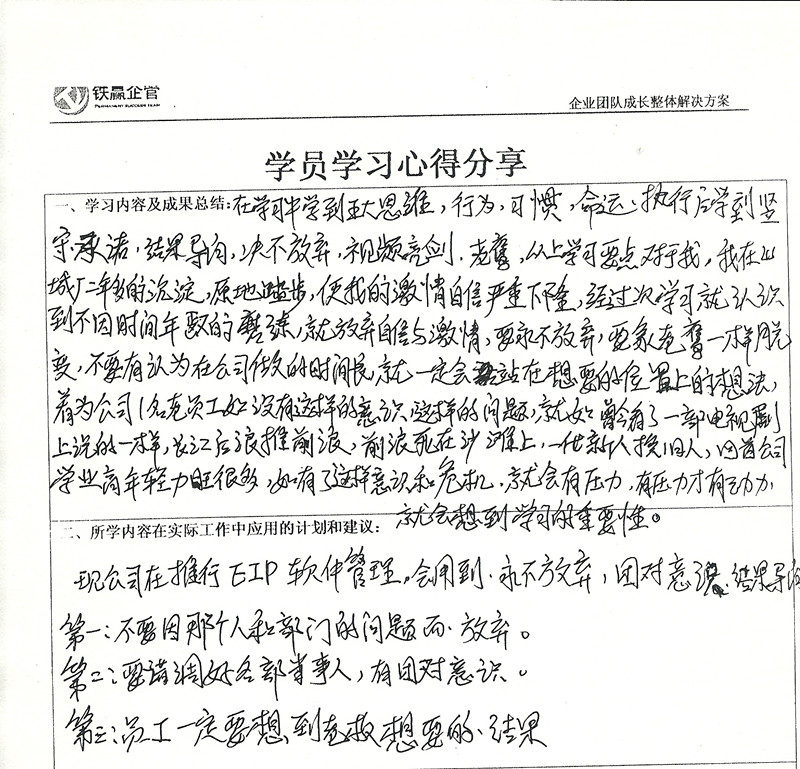 铁赢企管
PERMANENT SUCCESS TEAM
企业团队成长整体解决方案
学员学习心得分享
一、学习内容及成果总结:在学习中学到五大思维,行为,习惯,命运、执行后学到坚
守承诺,结果导向,决不放弃,视频亮剑.老鹰,以上学习要点对于我,我在山
城厂二年多的沉淀,原地踏步,使我的激情自信严重下降,经过次学习就认识
到不因时间年数的磨练,就放弃自信与激情,要永不放弃,要象老鹰一样脱
变,不要有认为在公司做久的时间长,就一定会站在想要的位置上的想法,
着为公司1名老员工如没有这样的意识,这样的问题,就如曾今看了一部电视剧
上说的一样,长江后浪推前浪,前浪死在沙滩上,一代新人换旧人,因首公司
学业高年轻力旺很多,如有了这样意识和危机,就会有压力,有压力才有动力
就会想到学习的重要性。
二、所学内容在实际工作中应用的计划和建议:
现公司在推行EIP软件管理,会用到.永不放弃,团对意识,结果导向
第一:不要因那个人和部门的问题而.放弃。
第二:要协调好各部当事人,有团对意识。
第三:员工一定要想到老板想要的、结果